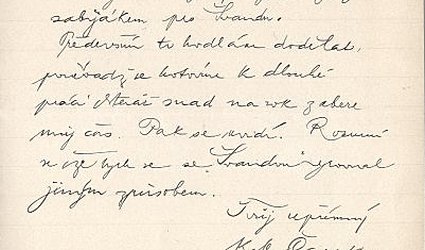 zabijákem pro Švandu.
Především to hodlám dodělat,
poněvadž se hotovíme k dlouhé
práci kteráž snad na rok zabere
můj čas. Pak se uvidí. Rozumí
se že bych se se "Švandou" srovnal
jiným způsobem.
Tvůj upřímný
K. M. Č